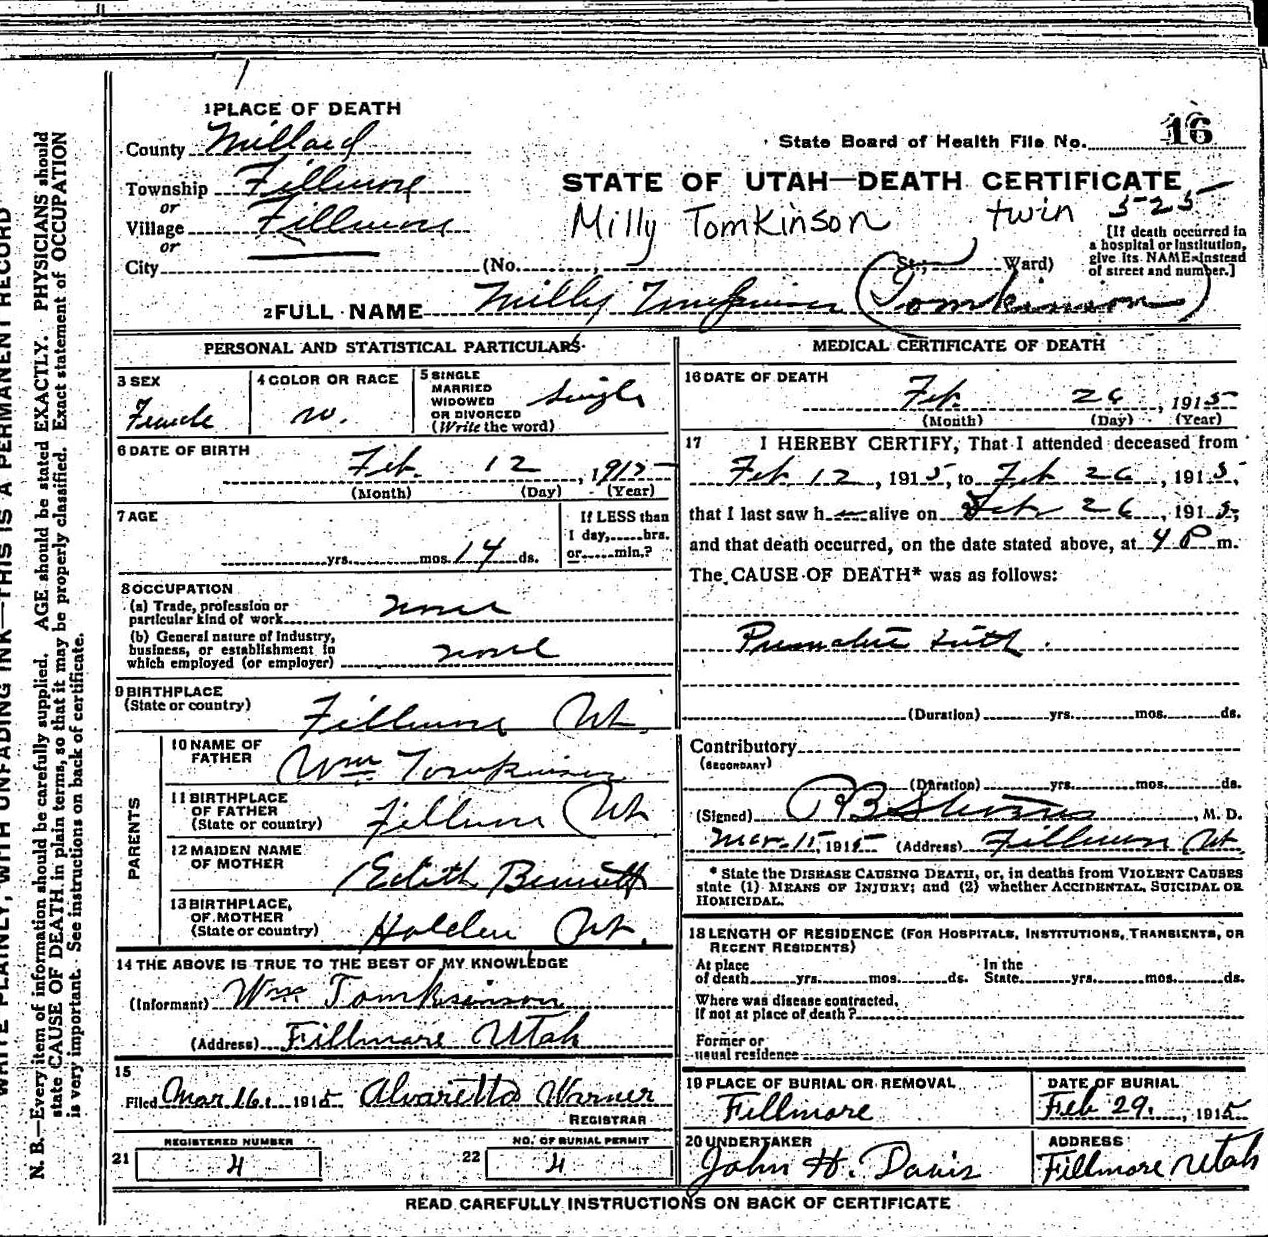 1 PLACE OF DEATH
County Millard
Township Fillmore
or
Village Fillmore
or
City (No. St., Ward)
State Board of Health File No. 16
STATE OF UTAH—DEATH CERTIFICATE
Milly Tomkinson twin 525
[If death occurred in
a hospital or institution,
give its NAME instead
of street and number.]
2 FULL NAME Milly Tomkinson (Tomkinson)
PERSONAL AND STATISTICAL PARTICULARS
3 SEX
Female
4 COLOR OR RACE
W.
5 SINGLE
MARRIED
WIDOWED
OR DIVORCED
(Write the word)
Single
6 DATE OF BIRTH
Feb. 12, 1915
(Month) (Day) (Year)
7 AGE
yrs. mos. 14 ds.
If LESS than
1 day, hrs.
or min.?
8 OCCUPATION
(a) Trade, profession or
particular kind of work none
(b) General nature of industry,
business, or establishment in
which employed (or employer) none
9 BIRTHPLACE
(State or country)
Fillmore Ut.
PARENTS
10 NAME OF
FATHER
Wm. Tomkinson
11 BIRTHPLACE
OF FATHER
(State or country)
Fillmore Ut.
12 MAIDEN NAME
OF MOTHER
Edith Bennett
13 BIRTHPLACE
OF MOTHER
(State or country)
Holden Ut.
14 THE ABOVE IS TRUE TO THE BEST OF MY KNOWLEDGE
(Informant) Wm Tomksinson
(Address) Fillmore Utah
15
Filed Mar 16. 1915 Alvaretta Warner
REGISTRAR
REGISTERED NUMBER
21 4
NO. OF BURIAL PERMIT
22 4
MEDICAL CERTIFICATE OF DEATH
16 DATE OF DEATH
Feb. 26, 1915
(Month) (Day) (Year)
17 I HEREBY CERTIFY, That I attended deceased from
Feb 12, 1915, to Feb 26, 1915,
that I last saw h alive on Feb 26, 1915,
and that death occurred, on the date stated above, at 4 P m.
The CAUSE OF DEATH* was as follows:
Premature birth.
(Duration) yrs. mos. ds.
Contributory
(SECONDARY)
(Duration) yrs. mos. ds.
(Signed) Stevens, M. D.
Mar. 15, 1915 (Address) Fillmore Ut
* State the DISEASE CAUSING DEATH, or, in deaths from VIOLENT CAUSES
state (1) MEANS OF INJURY; and (2) whether ACCIDENTAL, SUICIDAL OR
HOMICIDAL.
18 LENGTH OF RESIDENCE (FOR HOSPITALS, INSTITUTIONS, TRANSIENTS, OR
RECENT RESIDENTS)
At place In the
of death yrs. mos. ds. State yrs. mos. ds.
Where was disease contracted,
if not at place of death?
Former or
usual residence
19 PLACE OF BURIAL OR REMOVAL
Fillmore
DATE OF BURIAL
Feb 29. , 1915
20 UNDERTAKER
John H. Davis
ADDRESS
Fillmore Utah
READ CAREFULLY INSTRUCTIONS ON BACK OF CERTIFICATE
WRITE PLAINLY, WITH UNFADING INK—THIS IS A PERMANENT RECORD
N. B.—Every item of information should be carefully supplied. AGE should be stated EXACTLY. PHYSICIANS should
state CAUSE OF DEATH in plain terms, so that it may be properly classified. Exact statement of OCCUPATION
is very important. See instructions on back of certificate.